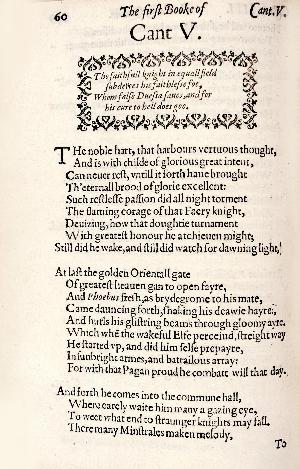 60 The first Booke of Cant. V.
Cant V.
The faithfull knight in equall field
subdewes his faithlesse foe,
Whom false Duessa saues, and for
his cure to hell does goe.
The noble hart, that harbours vertuous thought,
And is with childe of glorious great intent,
Can neuer rest, vntill it forth haue brought
Th'eternall brood of glorie excellent:
Such restlesse passion did all night torment
The flaming corage of that Faery knight,
Deuizing, how that doughtie turnament
With greatest honour he atchieuen might;
Still did he wake, and still did watch for dawning light.
At last the golden Orientall gate
Of greatest heauen gan to open fayre,
And Phœbus fresh, as brydegrome to his mate,
Came dauncing forth, shaking his deawie hayre:
And hurls his glistring beams through gloomy ayre.
Which when the wakeful Elfe perceiud, streight way
He started vp, and did him selfe prepayre,
In sunbright armes, and battailous array:
For with that Pagan proud he combatt will that day.
And forth he comes into the commune hall,
Where earely waite him many a gazing eye,
To weet what end to straunger knights may fall.
There many Minstrales maken melody,
To